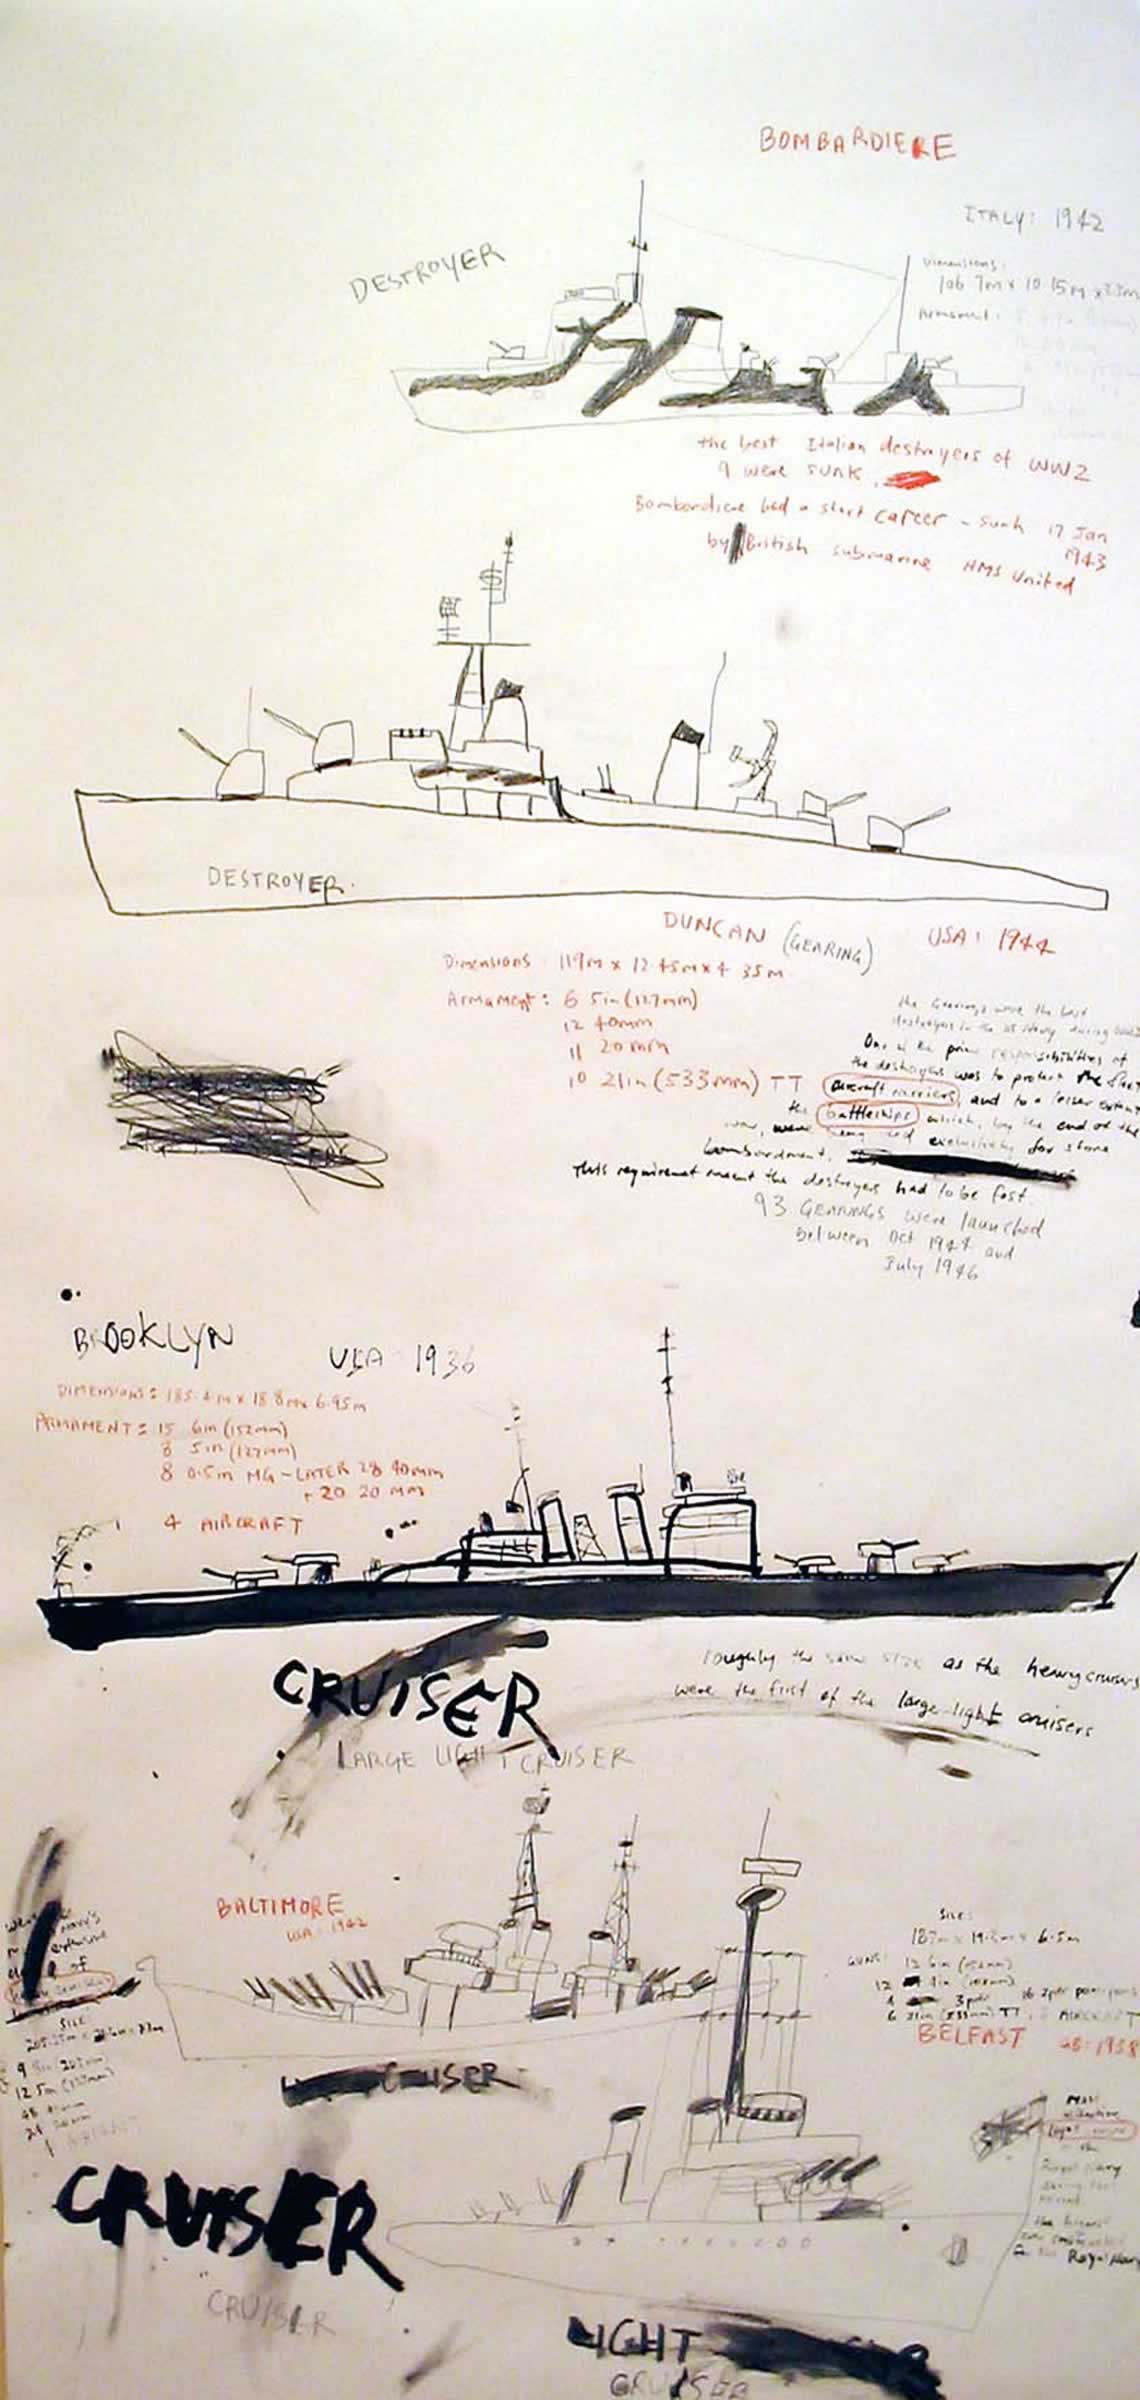 BOMBARDIERE
ITALY: 1942
DESTROYER
Dimensions:
106 7m x 10.15m x 3.3m
Armament:
the best Italian destroyers of WW2
9 were sunk.
Bombardiere had a short career - sunk 17 Jan
1943
by British submarine HMS United
DESTROYER.
DUNCAN (GEARING) USA: 1944
Dimensions: 119m x 12.45m x 4 35m
Armament: 6 5in (127mm)
12 40mm
11 20mm
10 21in (533mm) TT
the Gearings were the best
destroyers in the US Navy during
One of the prime responsibilities of
the destroyers was to protect the fleet
aircraft carriers, and to a lesser extent
the battleships which, by the end of the
war, were being used exclusively for shore
bombardment.
This requirement meant the destroyers had to be fast.
93 GEARINGS were launched
between Oct 1944 and
July 1946
BROOKLYN USA 1936
DIMENSIONS: 185.4m x 18 8m x 6.95m
ARMAMENT: 15 6in (152mm)
8 5in (127mm)
8 0.5in MG - LATER 28 40mm
+ 20 20 MM
4 AIRCRAFT
CRUISER
LARGE LIGHT CRUISER
roughly the same size as the heavy cruisers
were the first of the large light cruisers
BALTIMORE
USA 1942
SIZE:
CRUISER
CRUISER
CRUISER
SIZE:
187m x 19.2m x 6.5m
GUNS: 12 6in (152mm)
6 21in (533mm) TT, AIRCRAFT
BELFAST GB: 1938
Most
in the
Royal Navy
the largest
Royal Navy
LIGHT
CRUISER